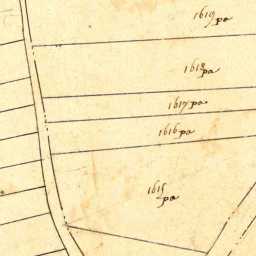 1619 pa
1618 pa
1617 pa
1616 pa
1615 pa